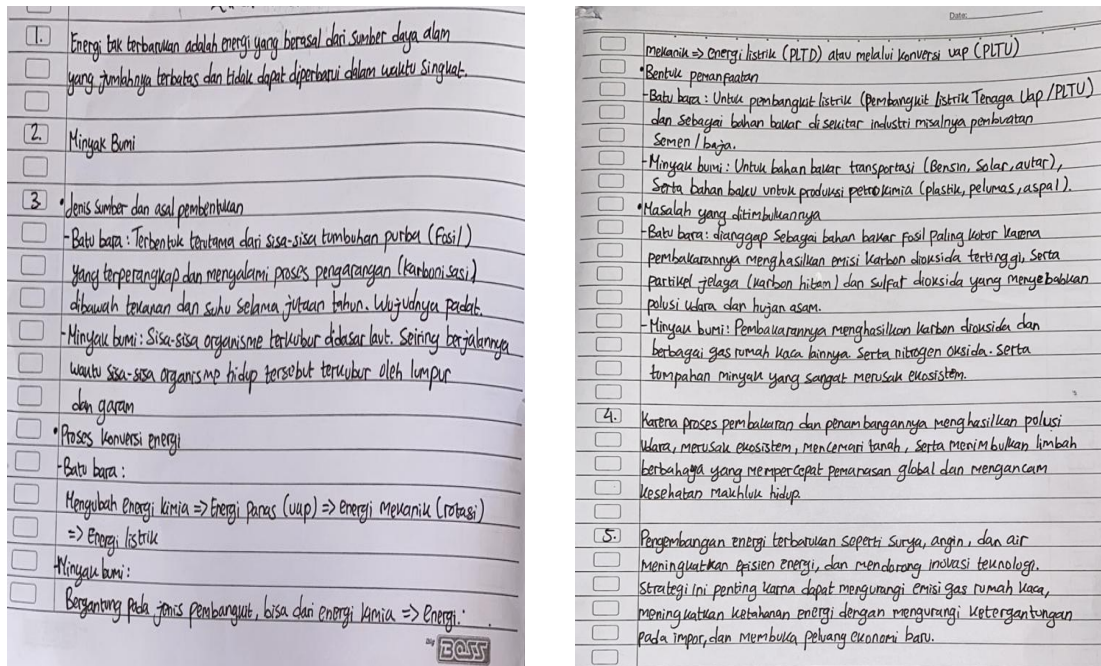 1. Energi tak terbarukan adalah energi yang berasal dari sumber daya alam
yang jumlahnya terbatas dan tidak dapat diperbarui dalam waktu singkat.
2. Minyak Bumi
3. • Jenis sumber dan asal pembentukan
- Batu bara : Terbentuk terutama dari sisa-sisa tumbuhan purba (Fosil)
yang terperangkap dan mengalami proses pengarangan (karbonisasi)
dibawah tekanan dan suhu selama jutaan tahun. Wujudnya padat.
- Minyak bumi : Sisa-sisa organisme terkubur didasar laut. Seiring berjalannya
waktu sisa-sisa organisme hidup tersebut terkubur oleh lumpur
dan garam
• Proses konversi energi
- Batu bara :
Mengubah energi kimia => Energi panas (uap) => energi mekanik (rotasi)
=> Energi listrik
- Minyak bumi :
Bergantung pada jenis pembangkit, bisa dari energi kimia => Energi
BOSS
Date:
mekanik => energi listrik (PLTD) atau melalui konversi uap (PLTU)
• Bentuk pemanfaatan
- Batu bara : Untuk pembangkit listrik (Pembangkit Listrik Tenaga Uap / PLTU)
dan sebagai bahan bakar di sekitar industri misalnya pembuatan
Semen / baja.
- Minyak bumi : Untuk bahan bakar transportasi (Bensin, Solar, avtar),
Serta bahan baku untuk produksi petrokimia (plastik, pelumas, aspal).
• Masalah yang ditimbulkannya
- Batu bara : dianggap Sebagai bahan bakar fosil Paling kotor karena
pembakarannya menghasilkan emisi karbon dioksida tertinggi, Serta
partikel jelaga (karbon hitam) dan sulfat dioksida yang menyebabkan
polusi udara dan hujan asam.
- Minyak bumi : Pembakarannya menghasilkan karbon dioksida dan
berbagai gas rumah kaca lainnya. Serta nitrogen oksida. Serta
tumpahan minyak yang sangat merusak ekosistem.
4. Karena proses pembakaran dan penambangannya menghasilkan polusi
Udara, merusak ekosistem, mencemari tanah, Serta menimbulkan limbah
berbahaya yang mempercepat pemanasan global dan mengancam
kesehatan makhluk hidup.
5. Pengembangan energi terbarukan seperti surya, angin, dan air
Meningkatkan efisien energi, dan mendorong inovasi teknologi.
Strategi ini penting karna dapat mengurangi emisi gas rumah kaca,
meningkatkan ketahanan energi dengan mengurangi ketergantungan
pada impor, dan membuka peluang ekonomi baru.